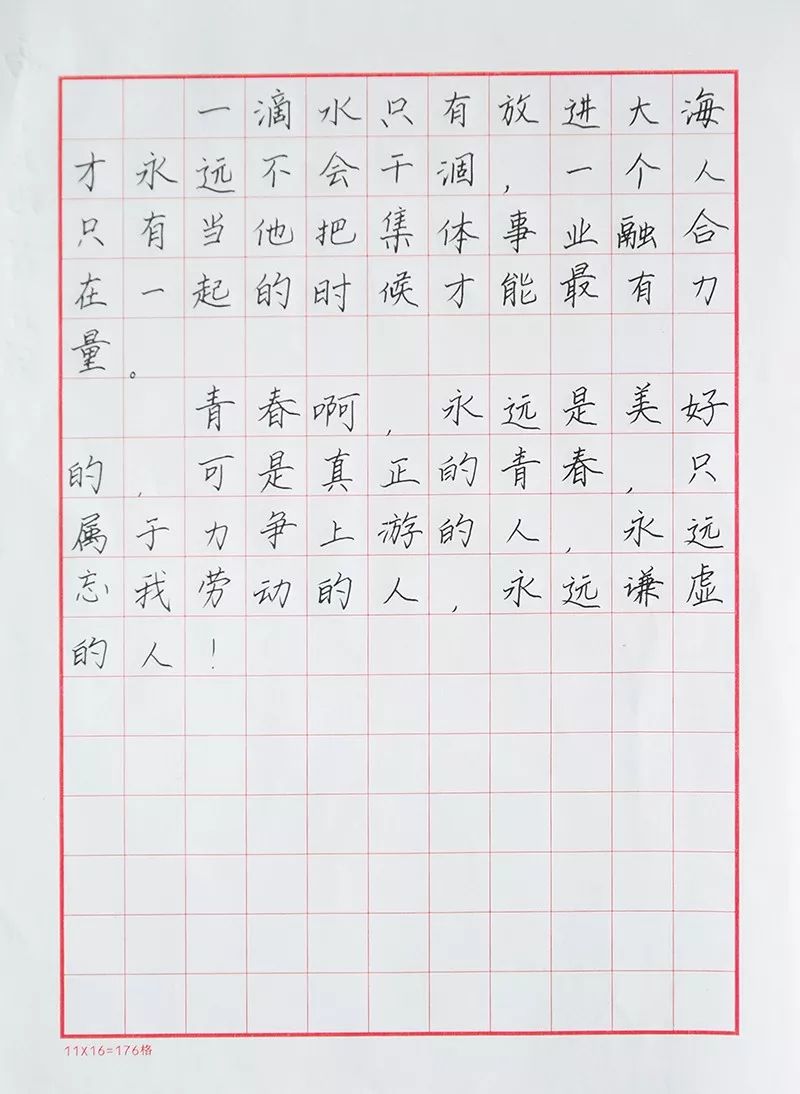 一滴水只有放进大海
才永远不会干涸，一个人
只有当他把集体事业融合
在一起的时候才能最有力
量。
青春啊，永远是美好
的，可是真正的青春，只
属于力争上游的人，永远
忘我劳动的人，永远谦虚
的人！
11X16=176格